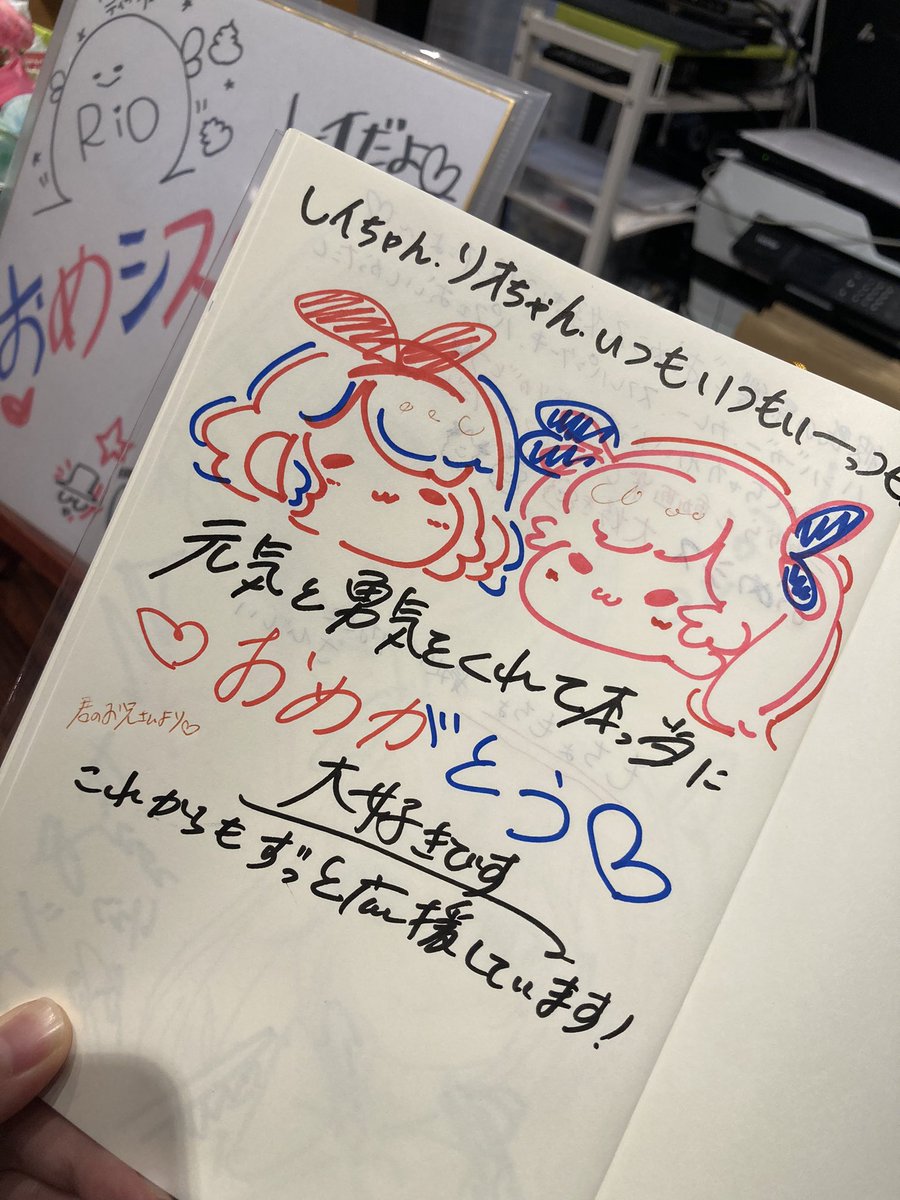 RiO
レイだよ♡
おめシス
レイちゃん.リオちゃん.いつもいつもいーっつも
元気と勇気をくれて本っ当に
♡おめがとう♡
君のお兄さんより♡
大好きです
これからもずっと応援しています!